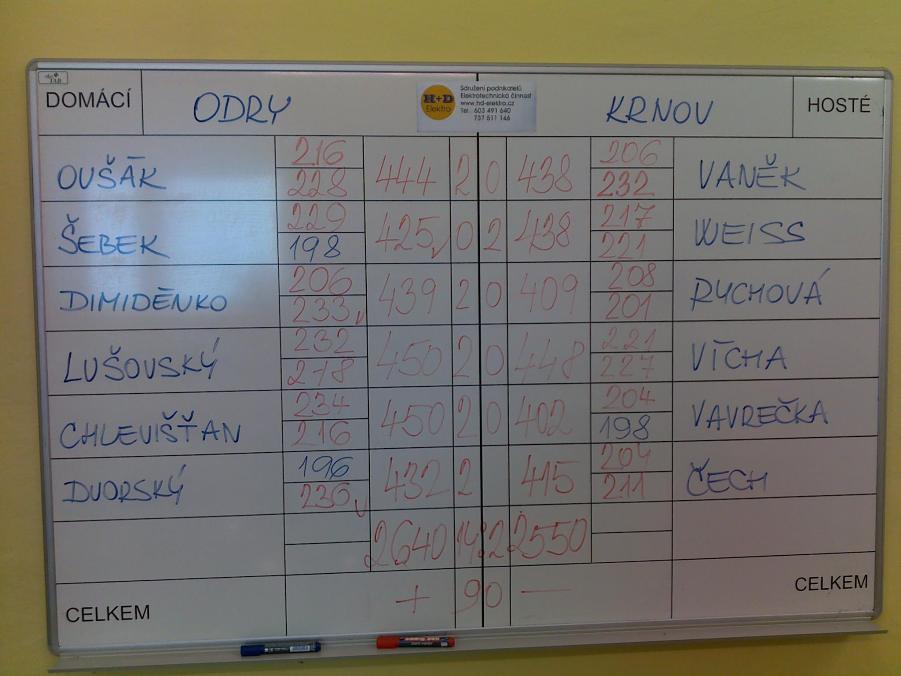 DOMÁCÍ ODRY KRNOV HOSTÉ
H+D Elektro
Sdružení podnikatelů
Elektrotechnická činnost
www.hd-elektro.cz
Tel.: 603 491 640
737 611 146
216 206
OUŠÁK 444 2 0 438 VANĚK
228 232
229 217
ŠEBEK 425 0 2 438 WEISS
198 221
206 208
DIMIDĚNKO 439 2 0 409 RYCHOVÁ
233 201
232 221
LUŠOVSKÝ 450 2 0 448 VÍCHA
218 227
234 204
CHLEVIŠŤAN 450 2 0 402 VAVREČKA
216 198
196 204
DVORSKÝ 432 2 415 ČECH
236 211
2640 14:2 2550
CELKEM + 90 — CELKEM